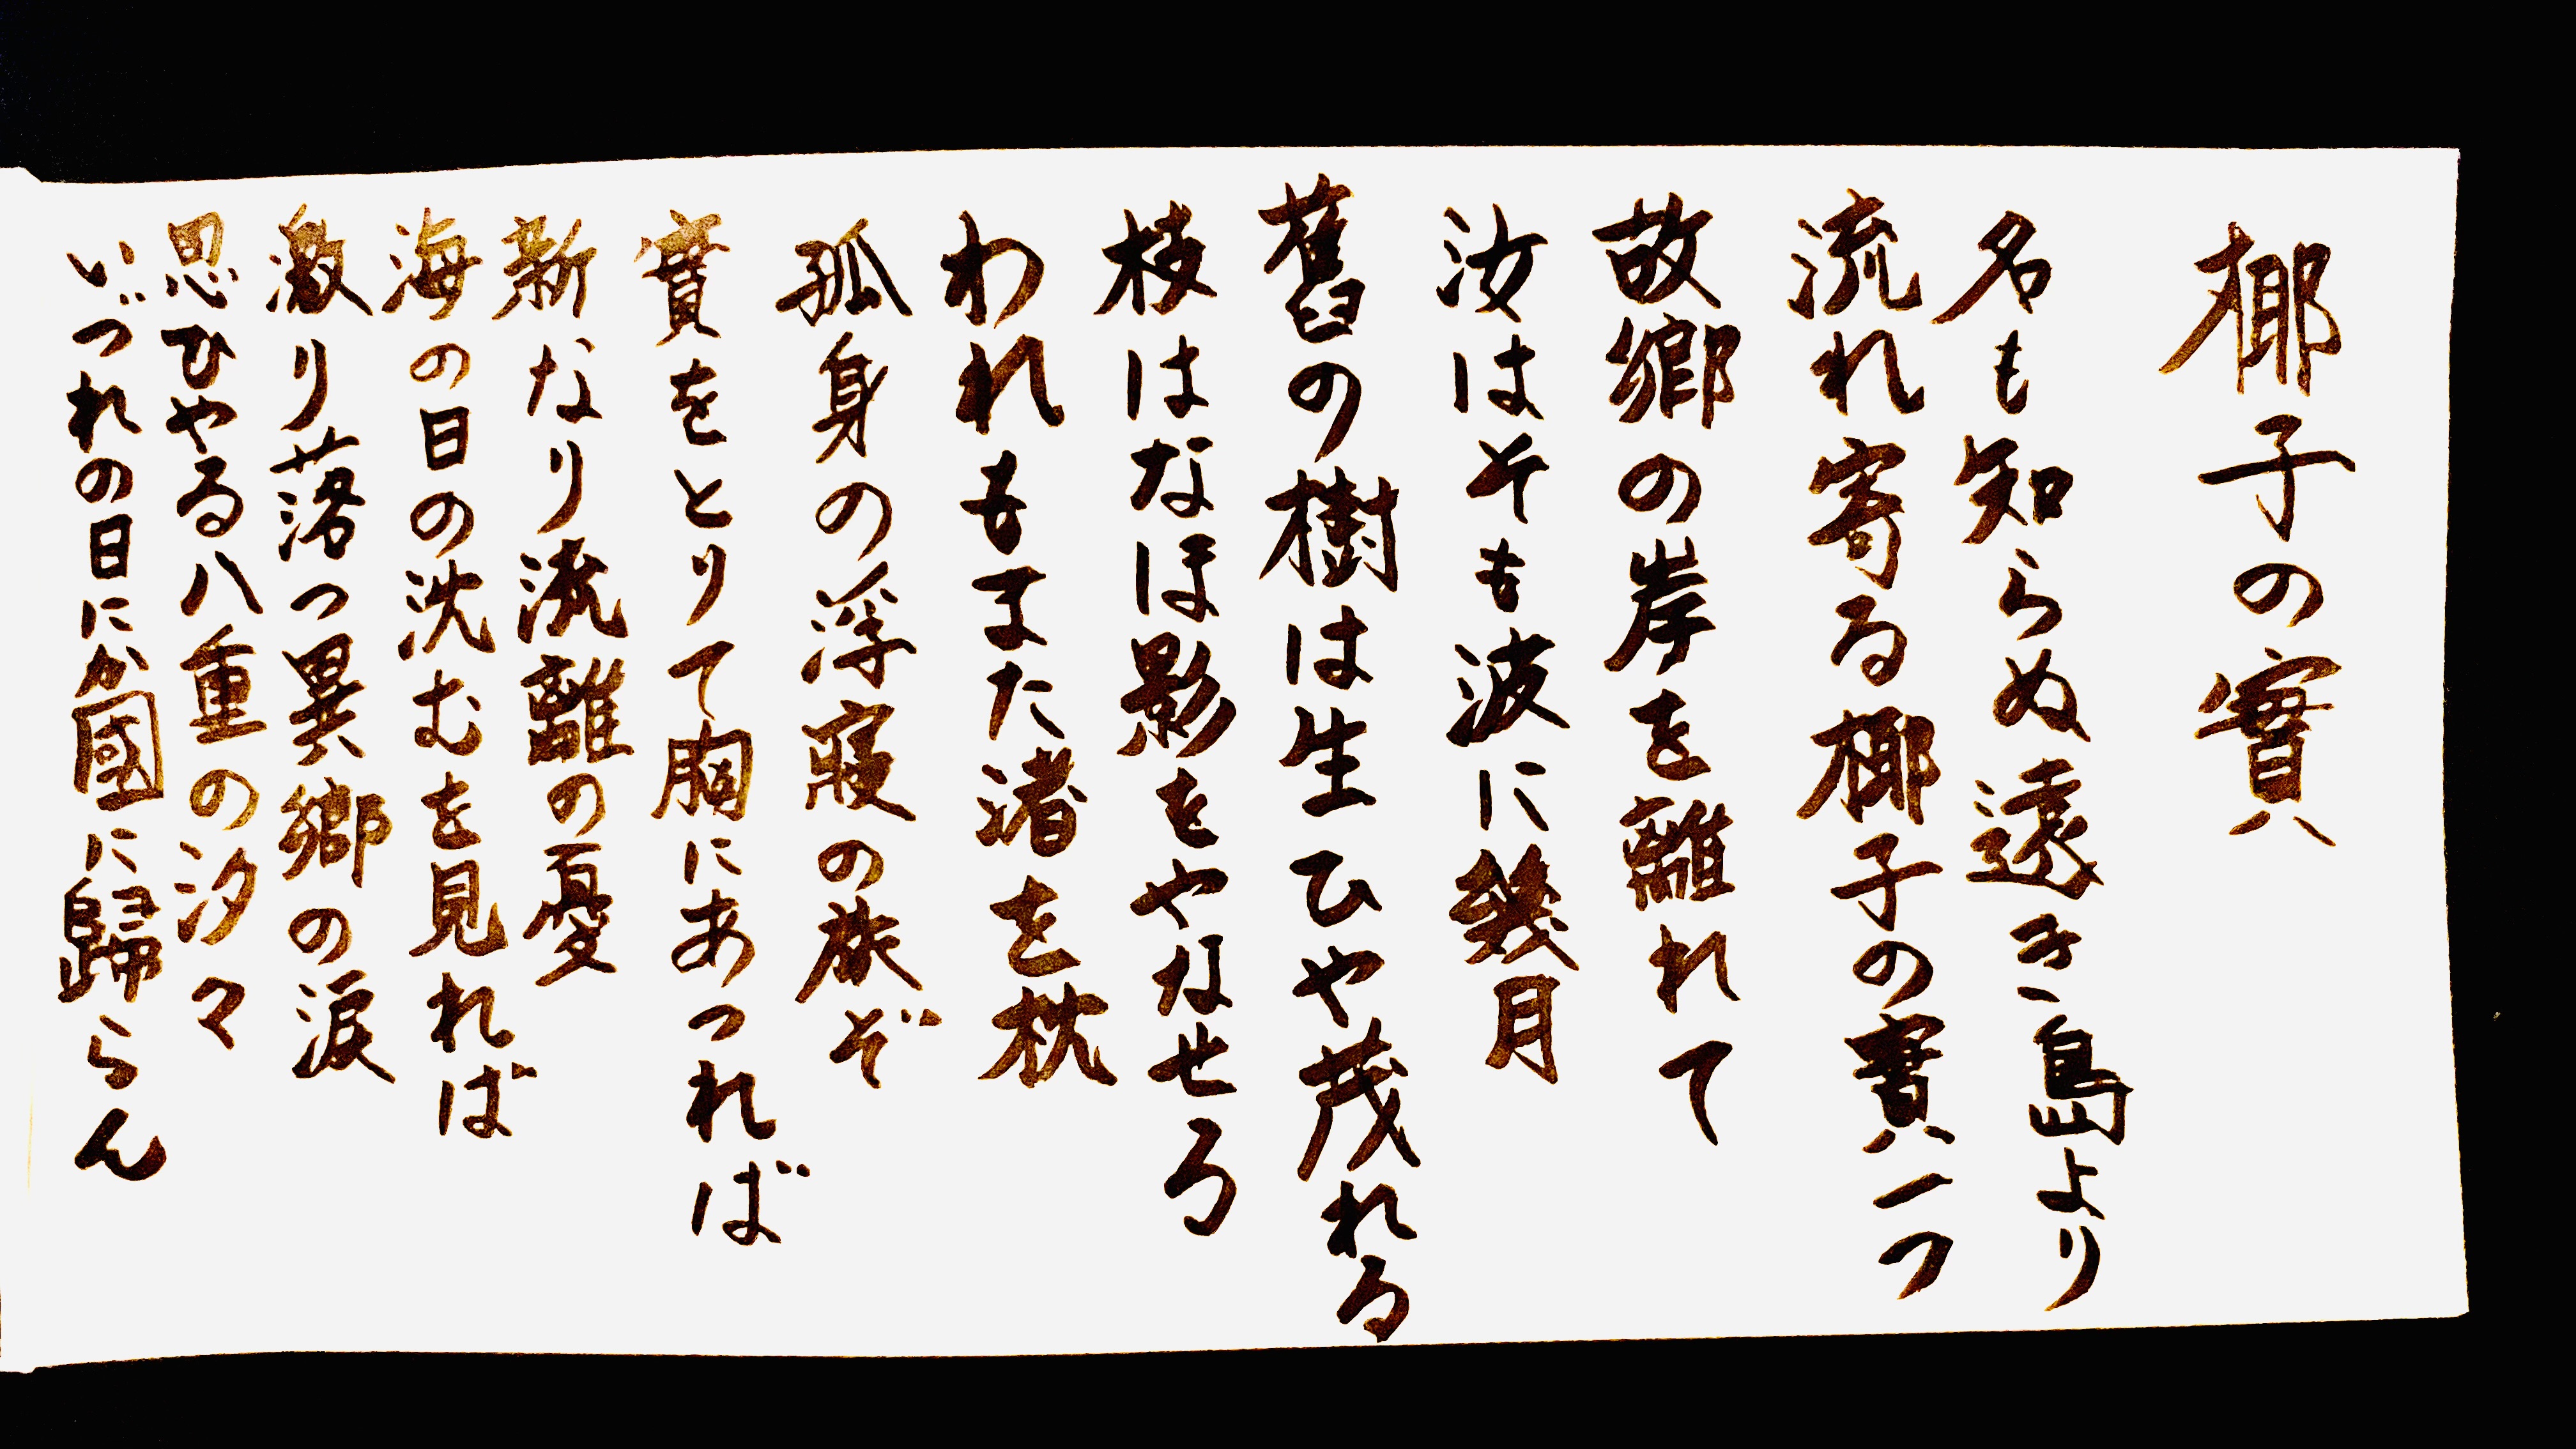 椰子の實
名も知らぬ遠き島より
流れ寄る椰子の實一つ
故郷の岸を離れて
汝はそも波に幾月
舊の樹は生ひや茂れる
枝はなほ影をやなせる
われもまた渚を枕
孤身の浮寝の旅ぞ
實をとりて胸にあつれば
新なり流離の憂
海の日の沈むを見れば
激り落つ異郷の涙
思ひやる八重の汐々
いづれの日にか國に歸らん